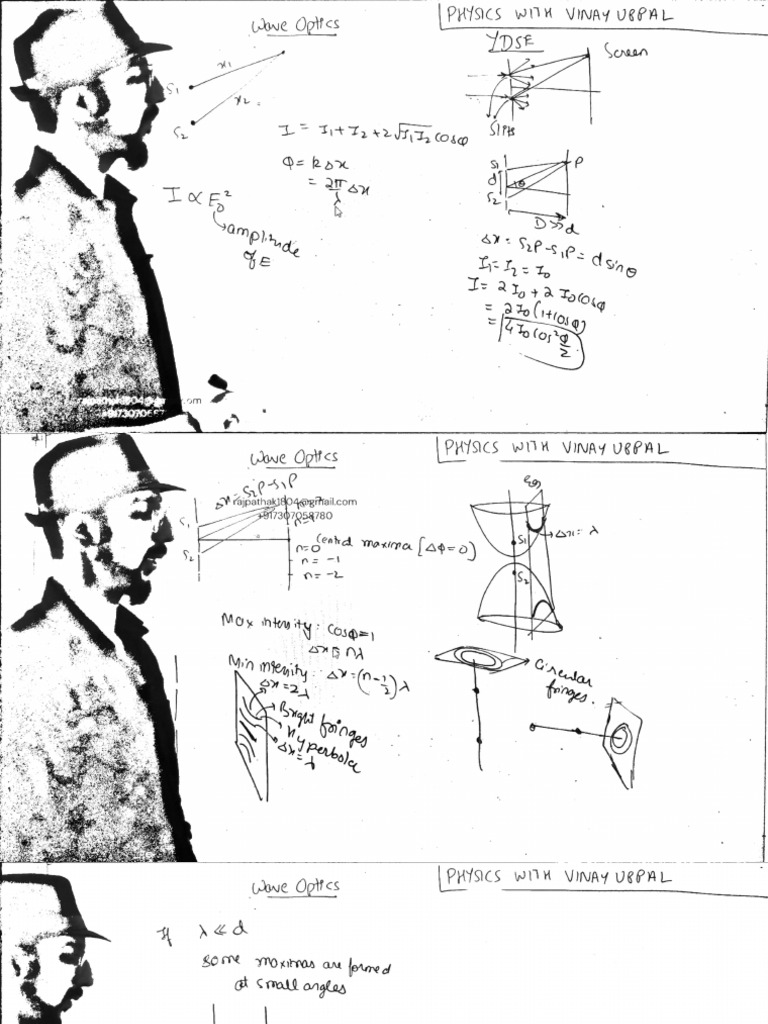 Wave Optics
PHYSICS WITH VINAY UBPAL
x1
S1
x2
S2
I = I1 + I2 + 2√I1I2 cosφ
φ = kΔx
= 2π/λ Δx
I ∝ E0²
amplitude
of E
YDSE
Screen
Slits
S1
d
S2
θ
P
D>>d
Δx = S2P - S1P = d sinθ
I1 = I2 = I0
I = 2I0 + 2I0cosφ
= 2I0(1+cosφ)
= 4I0 cos²φ/2
+91730705
Wave Optics
PHYSICS WITH VINAY UBPAL
Δx = S2P - S1P
rajpathak1804@gmail.com
+917307058780
S1
S2
n=0 Central maxima [Δφ=0]
n = -1
n = -2
Max intensity: cosφ=1
Δx = nλ
Min intensity: Δx = (n-1/2)λ
Δx = 2λ
Bright fringes
Hyperbola
Δx = λ
S1
S2
Δx = λ
Circular
fringes.
Wave Optics
PHYSICS WITH VINAY UBPAL
If λ << d
some maximas are formed
at small angles